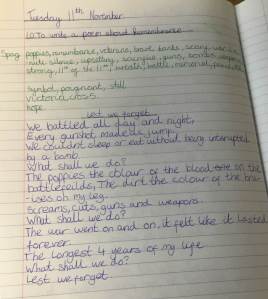 Tuesday 11th November
LO To write a poem about Remembrance
Spag poppies, remembrance, veterans, brave, tanks, scary, war,
silence, upsetting, sacrifice, guns, bombs, weapons
strong, 11th of the 11th, wreaths, battle, memorial, peaceful
Symbol, poignant, still
Victoria cross.
hope
Lest we forget
We battled all day and night,
Every gunshot made us jump,
We couldn't sleep or eat without being interupted
by a bomb.
What shall we do?
The poppies the colour of the blood on the
battlefeilds, The dirt the colour of the bru-
-ises on my leg.
Screams, cuts, guns and weapons.
What shall we do?
The war went on and on, it felt like it lasted
forever.
The longest 4 years of my life
What shall we do?
Lest we forget